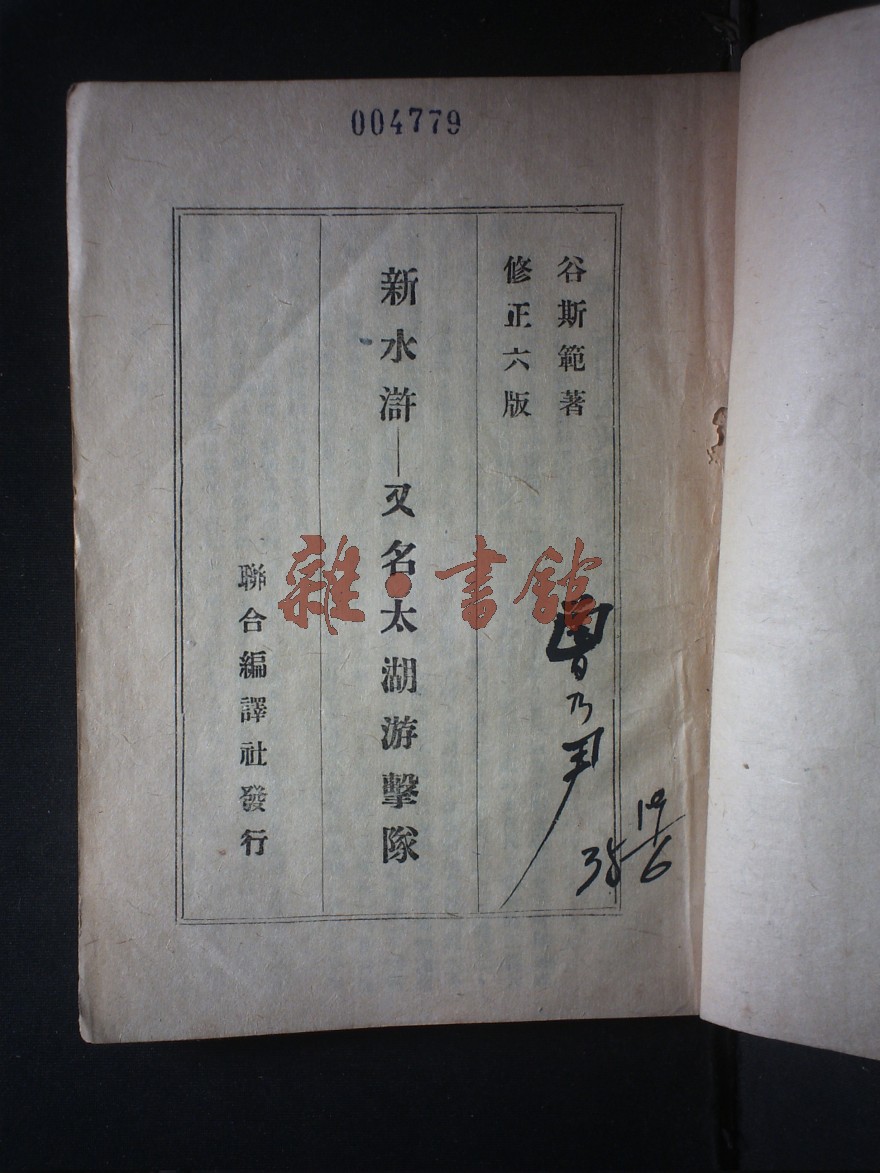 004779
谷斯範著
修正六版
新水滸—又名太湖游擊隊
聯合編譯社發行
雜·書館
曾乃
38 19/6